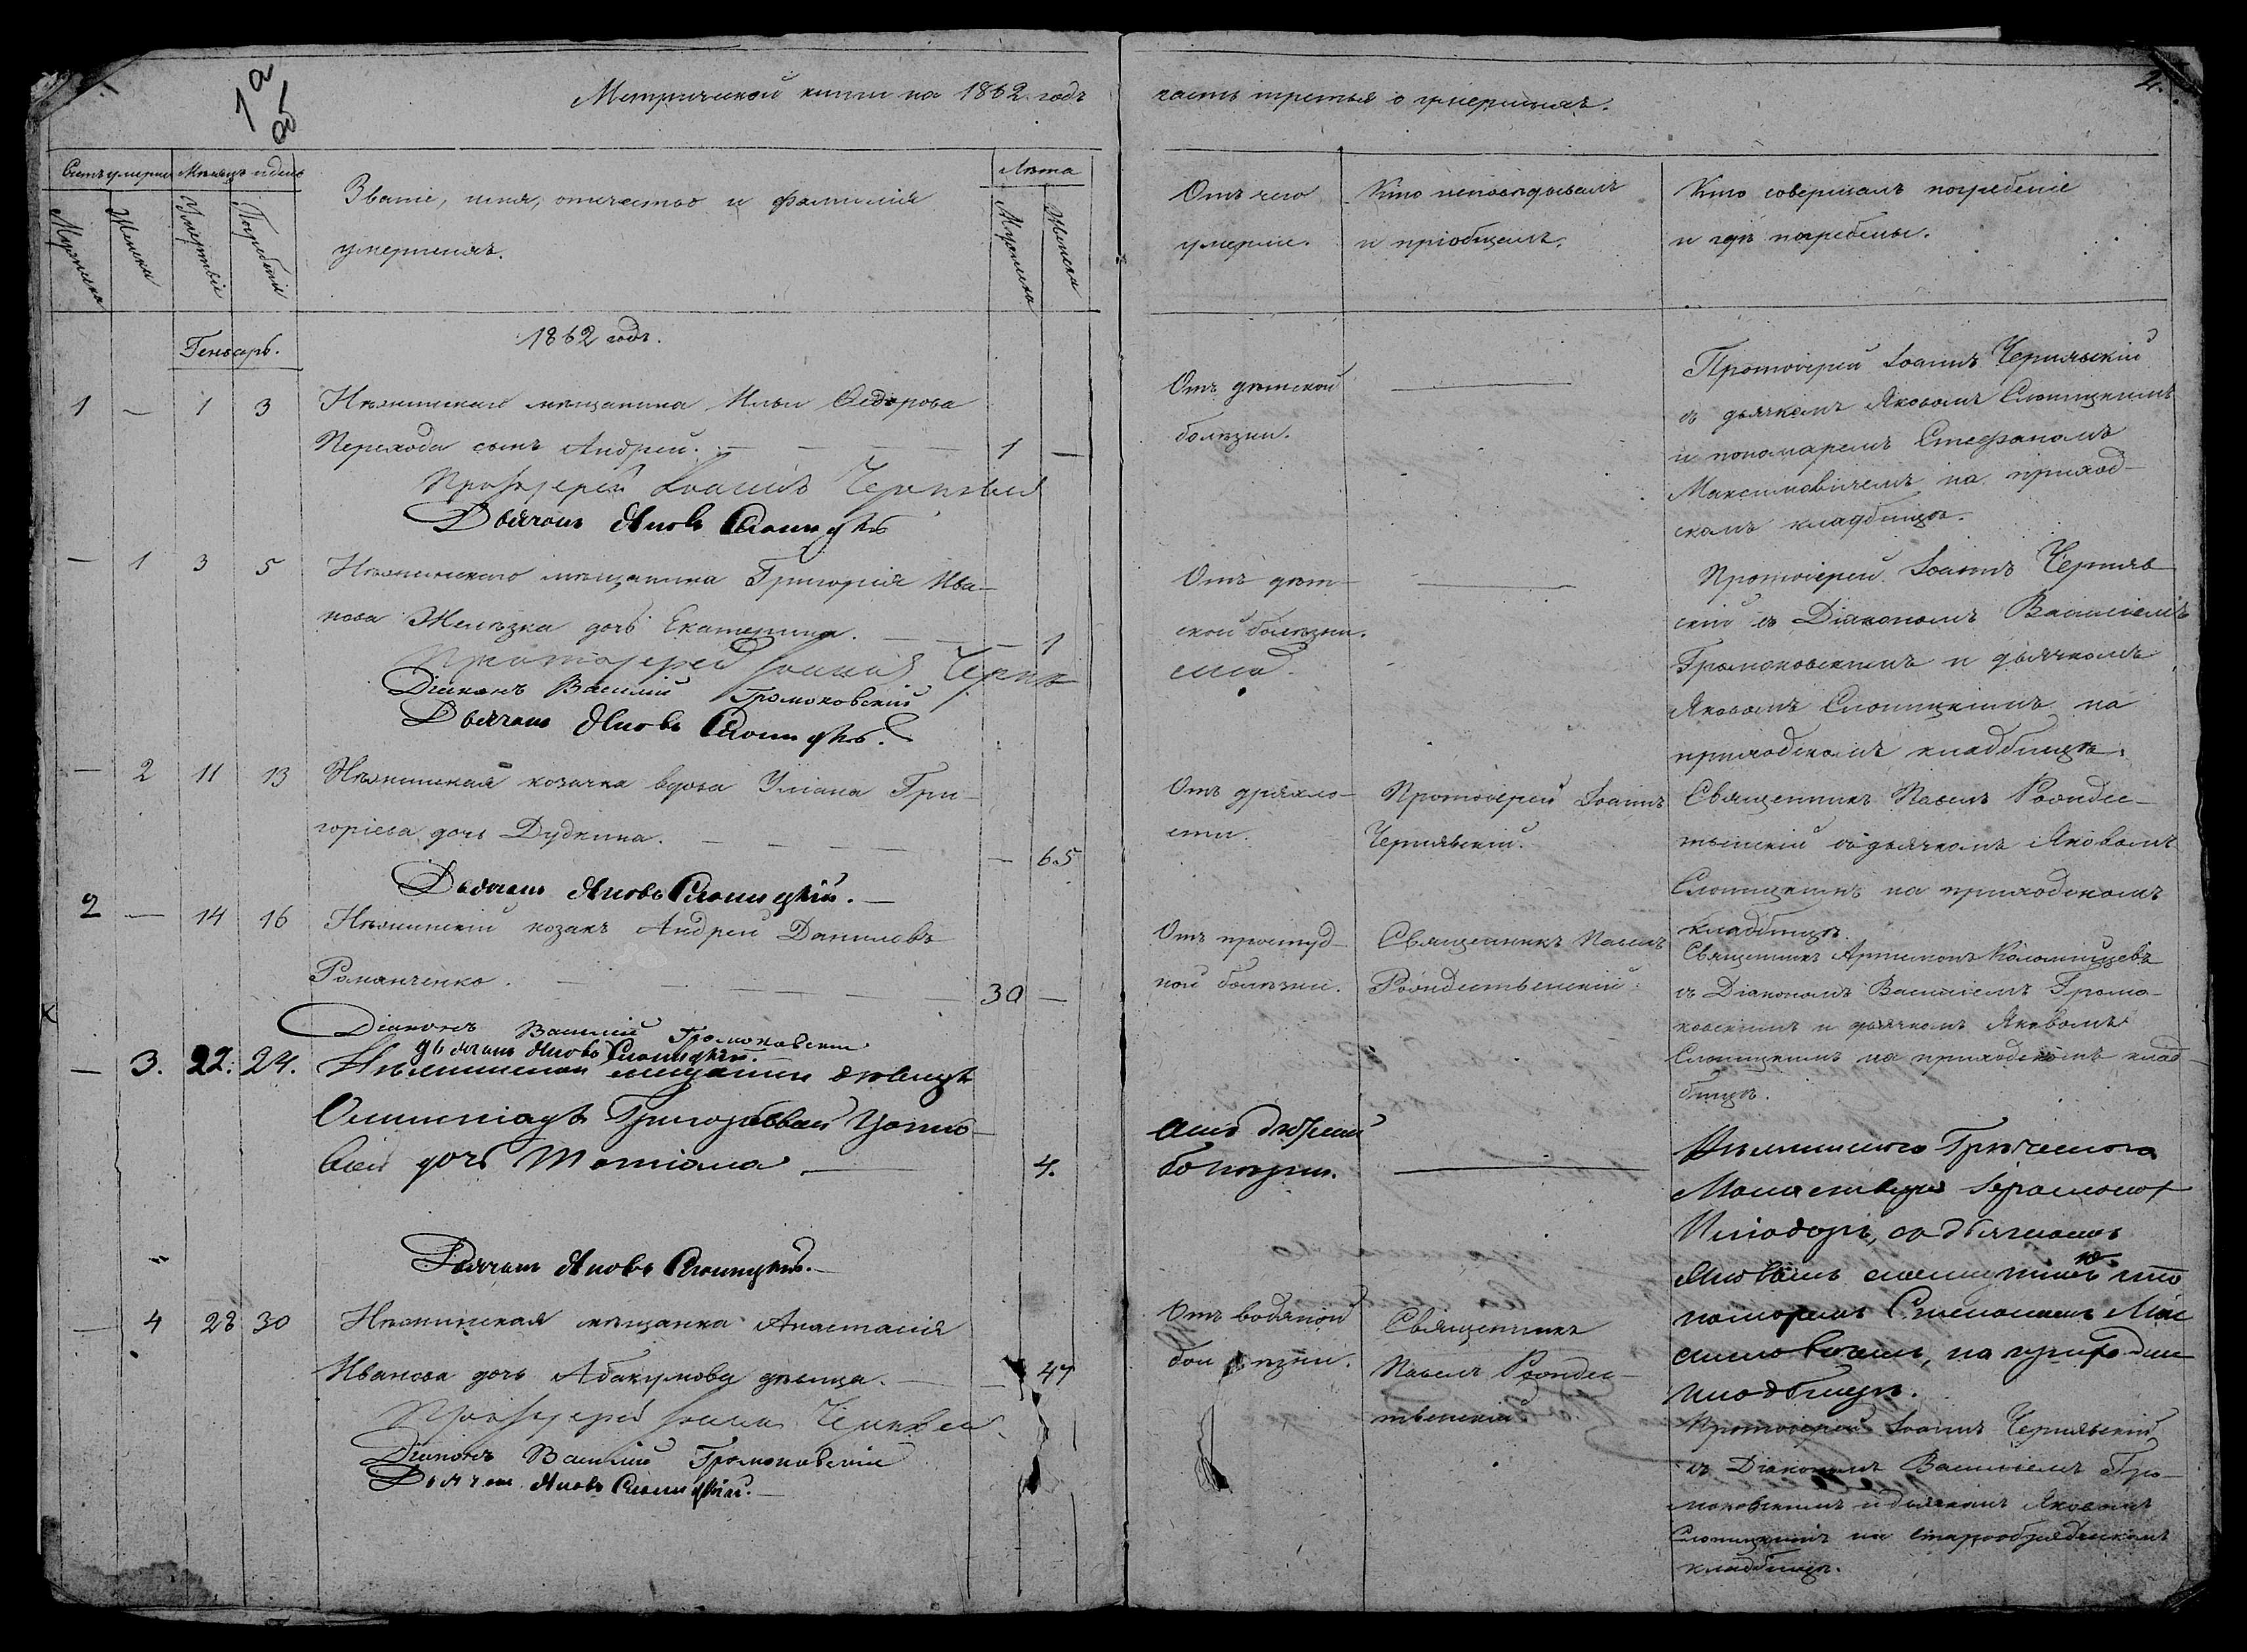 1а
об
Метрической книги на 1862 годъ
часть третья о умершихъ.
4.
Счетъ умерш
Мѣсяцъ и день
Званіе, имя, отчество и фамилія
умершихъ.
Лѣта
Мужеска
Женска
Умертвія
Погребенія
Мужеска
Женска
Отъ чего
умерли.
Кто исповѣдывалъ
и пріобщалъ.
Кто совершалъ погребеніе
и гдѣ погребены.
Генварь.
1862 годъ.
1 — 1 3 Нѣжинскаго мѣщанина Ильи Ѳедорова
Перехода сынъ Андрей. — 1 —
Протоіерей Іоаннъ
Дьячокъ Яковъ Слоницкій
Отъ дѣтской
болѣзни.
Протоіерей Іоаннъ Чернявскій
съ дьячкомъ Яковомъ Слоницкимъ
и пономаремъ Стефаномъ
Максимовичемъ на приход-
скомъ кладбищѣ.
— 1 3 5 Нѣжинского мѣщанина Григорія Ива-
нова Желѣзка дочь Екатерина. — 1
Протоіерей Іоаннъ
Діаконъ Василій Громоковскій
Дьячокъ Яковъ Слоницкій.
Отъ дѣт-
ской болѣзни.
Протоіерей Іоаннъ Черняв-
скій съ Діакономъ Василіемъ
Громоковскимъ и дьячкомъ
Яковомъ Слоницкимъ на
приходскомъ кладбищѣ.
— 2 11 13 Нѣжинская козачка вдова Уліана Гри-
горіева дочь Дудкина. — 65
Дьячокъ Яковъ Слоницкій. —
Отъ дряхло-
сти.
Протоіерей Іоаннъ
Чернявскій.
Священникъ Павелъ Рождес-
твенскій съ дьячкомъ Яковомъ
Слоницкимъ на приходскомъ
кладбищѣ.
2 — 14 16 Нѣжинскій козакъ Андрей Даниловъ
Романченко. — 30 —
Діаконъ Василій Громоковскій
Дьячокъ Яковъ Слоницкій. —
Отъ простуд-
ной болѣзни.
Священникъ Павелъ
Рождественскій.
Священникъ Артемонъ Коломійцевъ
съ Діакономъ Василіемъ Громо-
ковскимъ и дьячкомъ Яковомъ
Слоницкимъ на приходскомъ клад-
бищѣ.
— 3. 22. 24. Нѣжинской мещанки дѣвицы
Григорьевой
дочь Татіана — 4.
Дьячокъ Яковъ Слоницкій. —
болѣзни.
Нѣжинскаго Греческаго
Монастыря Іеромонах
со дьячкомъ
Яковомъ Слоницкимъ и по
номаремъ Стефаномъ Мак
симовичемъ, на приходском
кладбищѣ.
— 4 28 30 Нѣжинская мѣщанка Анастасія
Иванова дочь Абакумова дѣвица. — 47
Протоіерей Іоаннъ
Діаконъ Василій Громоковскій
Дьячокъ Яковъ Слоницкій. —
Отъ водяной
болѣзни.
Священникъ
Павелъ Рождес-
твенскій.
Протоіерей Іоаннъ Чернявскій
съ Діакономъ Василіемъ Гро-
моковскимъ и дьячкомъ Яковомъ
Слоницкимъ на старообрядческомъ
кладбищѣ.